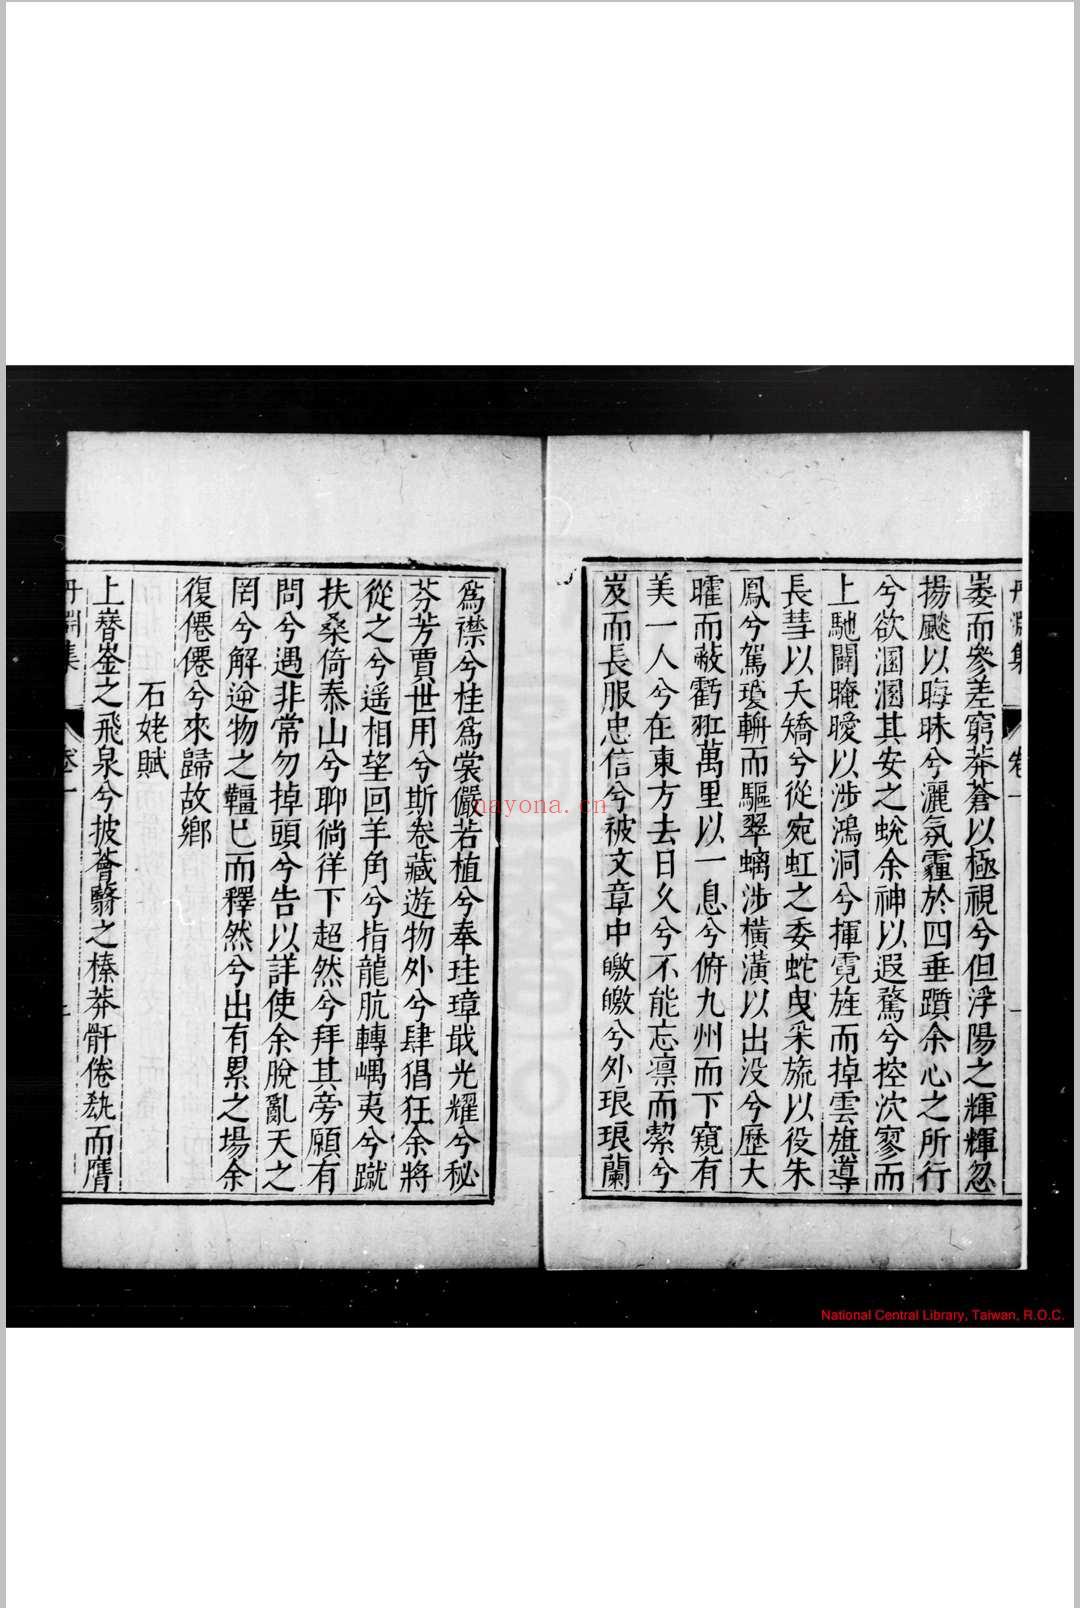 丹淵集 卷一
崣而參差窮莽蒼以極視兮但浮陽之輝輝忽
揚颷以晦昧兮灑氛霾於四垂躓余心之所行
兮欲溷溷其安之蛻余神以遐騖兮控沈寥而
上馳闢晻曖以涉鴻洞兮揮霓旌而掉雲旗導
長彗以夭矯兮從宛虹之委蛇曳采旒以役朱
鳳兮駕瓊輧而驅翠螭涉橫潢以出没兮歷大
曤而蔽虧豗萬里以一息兮俯九州而下窺有
美一人兮在東方去日久兮不能忘凛而潔兮
岌而長服忠信兮被文章中皦皦兮外琅琅蘭
爲襟兮桂爲裳儼若植兮奉珪璋戢光耀兮秘
芬芳賈世用兮斯卷藏遊物外兮肆猖狂余將
從之兮遥相望回羊角兮指龍肮轉嵎夷兮蹴
扶桑倚泰山兮聊徜徉下超然兮拜其旁願有
問兮遇非常勿掉頭兮告以詳使余脫亂天之
罔兮解逾物之韁已而釋然兮出有累之場余
復僊僊兮來歸故鄉
石姥賦
上㟥崟之飛泉兮披薈翳之榛莽骭倦㩻而膺
丹淵集 卷一
nayona.cn
National Central Library, Taiwan, R.O.C.